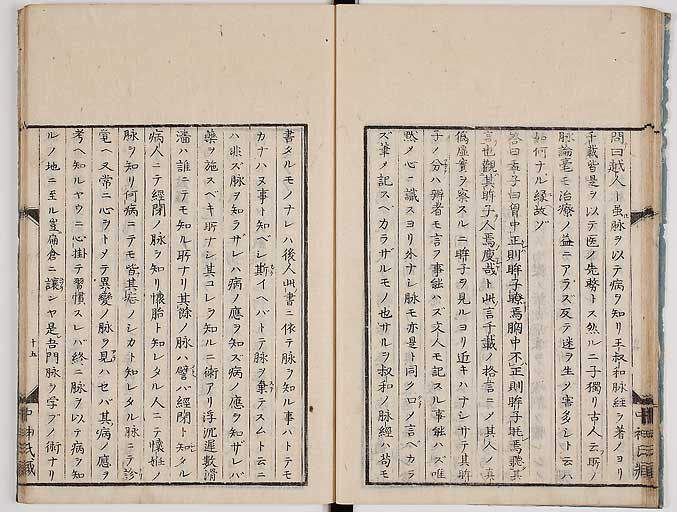 問曰越人ト虽脉ヲ以テ病ヲ知リ王叔和脉経ヲ著ノヨリ
千載皆是ヲ以テ医ノ先務トス然ルニ子獨リ古人云所ノ
脉論毫モ治療ノ益ニアラズ反テ迷ヲ生ノ害多シト云ハ
如何ナル縁故ゾ
答曰孟子曰胸中正則眸子瞭焉胸中不正則眸子眊焉聽其
言也觀其眸子人焉廋哉ト此言千載ノ格言ニノ其人ノ真
偽虚實ヲ察スルニ眸子ヲ見ルヨリ近キハナシサテ其眸
子ノ分ハ辨者モ言フ事能ハズ文人モ記スル事能ハズ唯
黙ノ心ニ識スヨリ外ナシ脉モ亦是ト同クロノ言ヘカラ
ズ筆ノ記スヘカラザルモノ也サルヲ叔和ノ脉經ハ苟モ
書タルモノナレハ後人此書ニ依テ脉ヲ知ル事ハトテモ
カナハヌ事ト知ベシ斯イヘバトテ脉ヲ棄テスムト云ニ
ハ非ズ脉ヲ知ラザレハ病ノ應ヲ知ズ病ノ應ヲ知ザレバ
藥ヲ施スベキ所ナシ其コレヲ知ルニ術アリ浮沉遅數滑
濇ハ誰ニテモ知ル所ナリ其餘ノ脉ハ譬バ經閉ト知タル
病人ニテ經閉ノ脉ヲ知リ懷胎ト知レタル人ニテ懷妊ノ
脉ヲ知リ何病ニテモ皆其惣ノシカト知レタル脉ニテ診
電ヘ又常ニ心ヲトメテ異變ノ脉ヲ見ハセバ其病ノ應ヲ
考ヘ知ルヤウニ心掛テ習慣スレバ終ニ脉ヲ以テ病ヲ知
ルノ地ニ至ル豈扁倉ニ讓ンヤ是吾門脉ヲ学ブノ術ナリ
十五
中神氏藏
中神氏藏